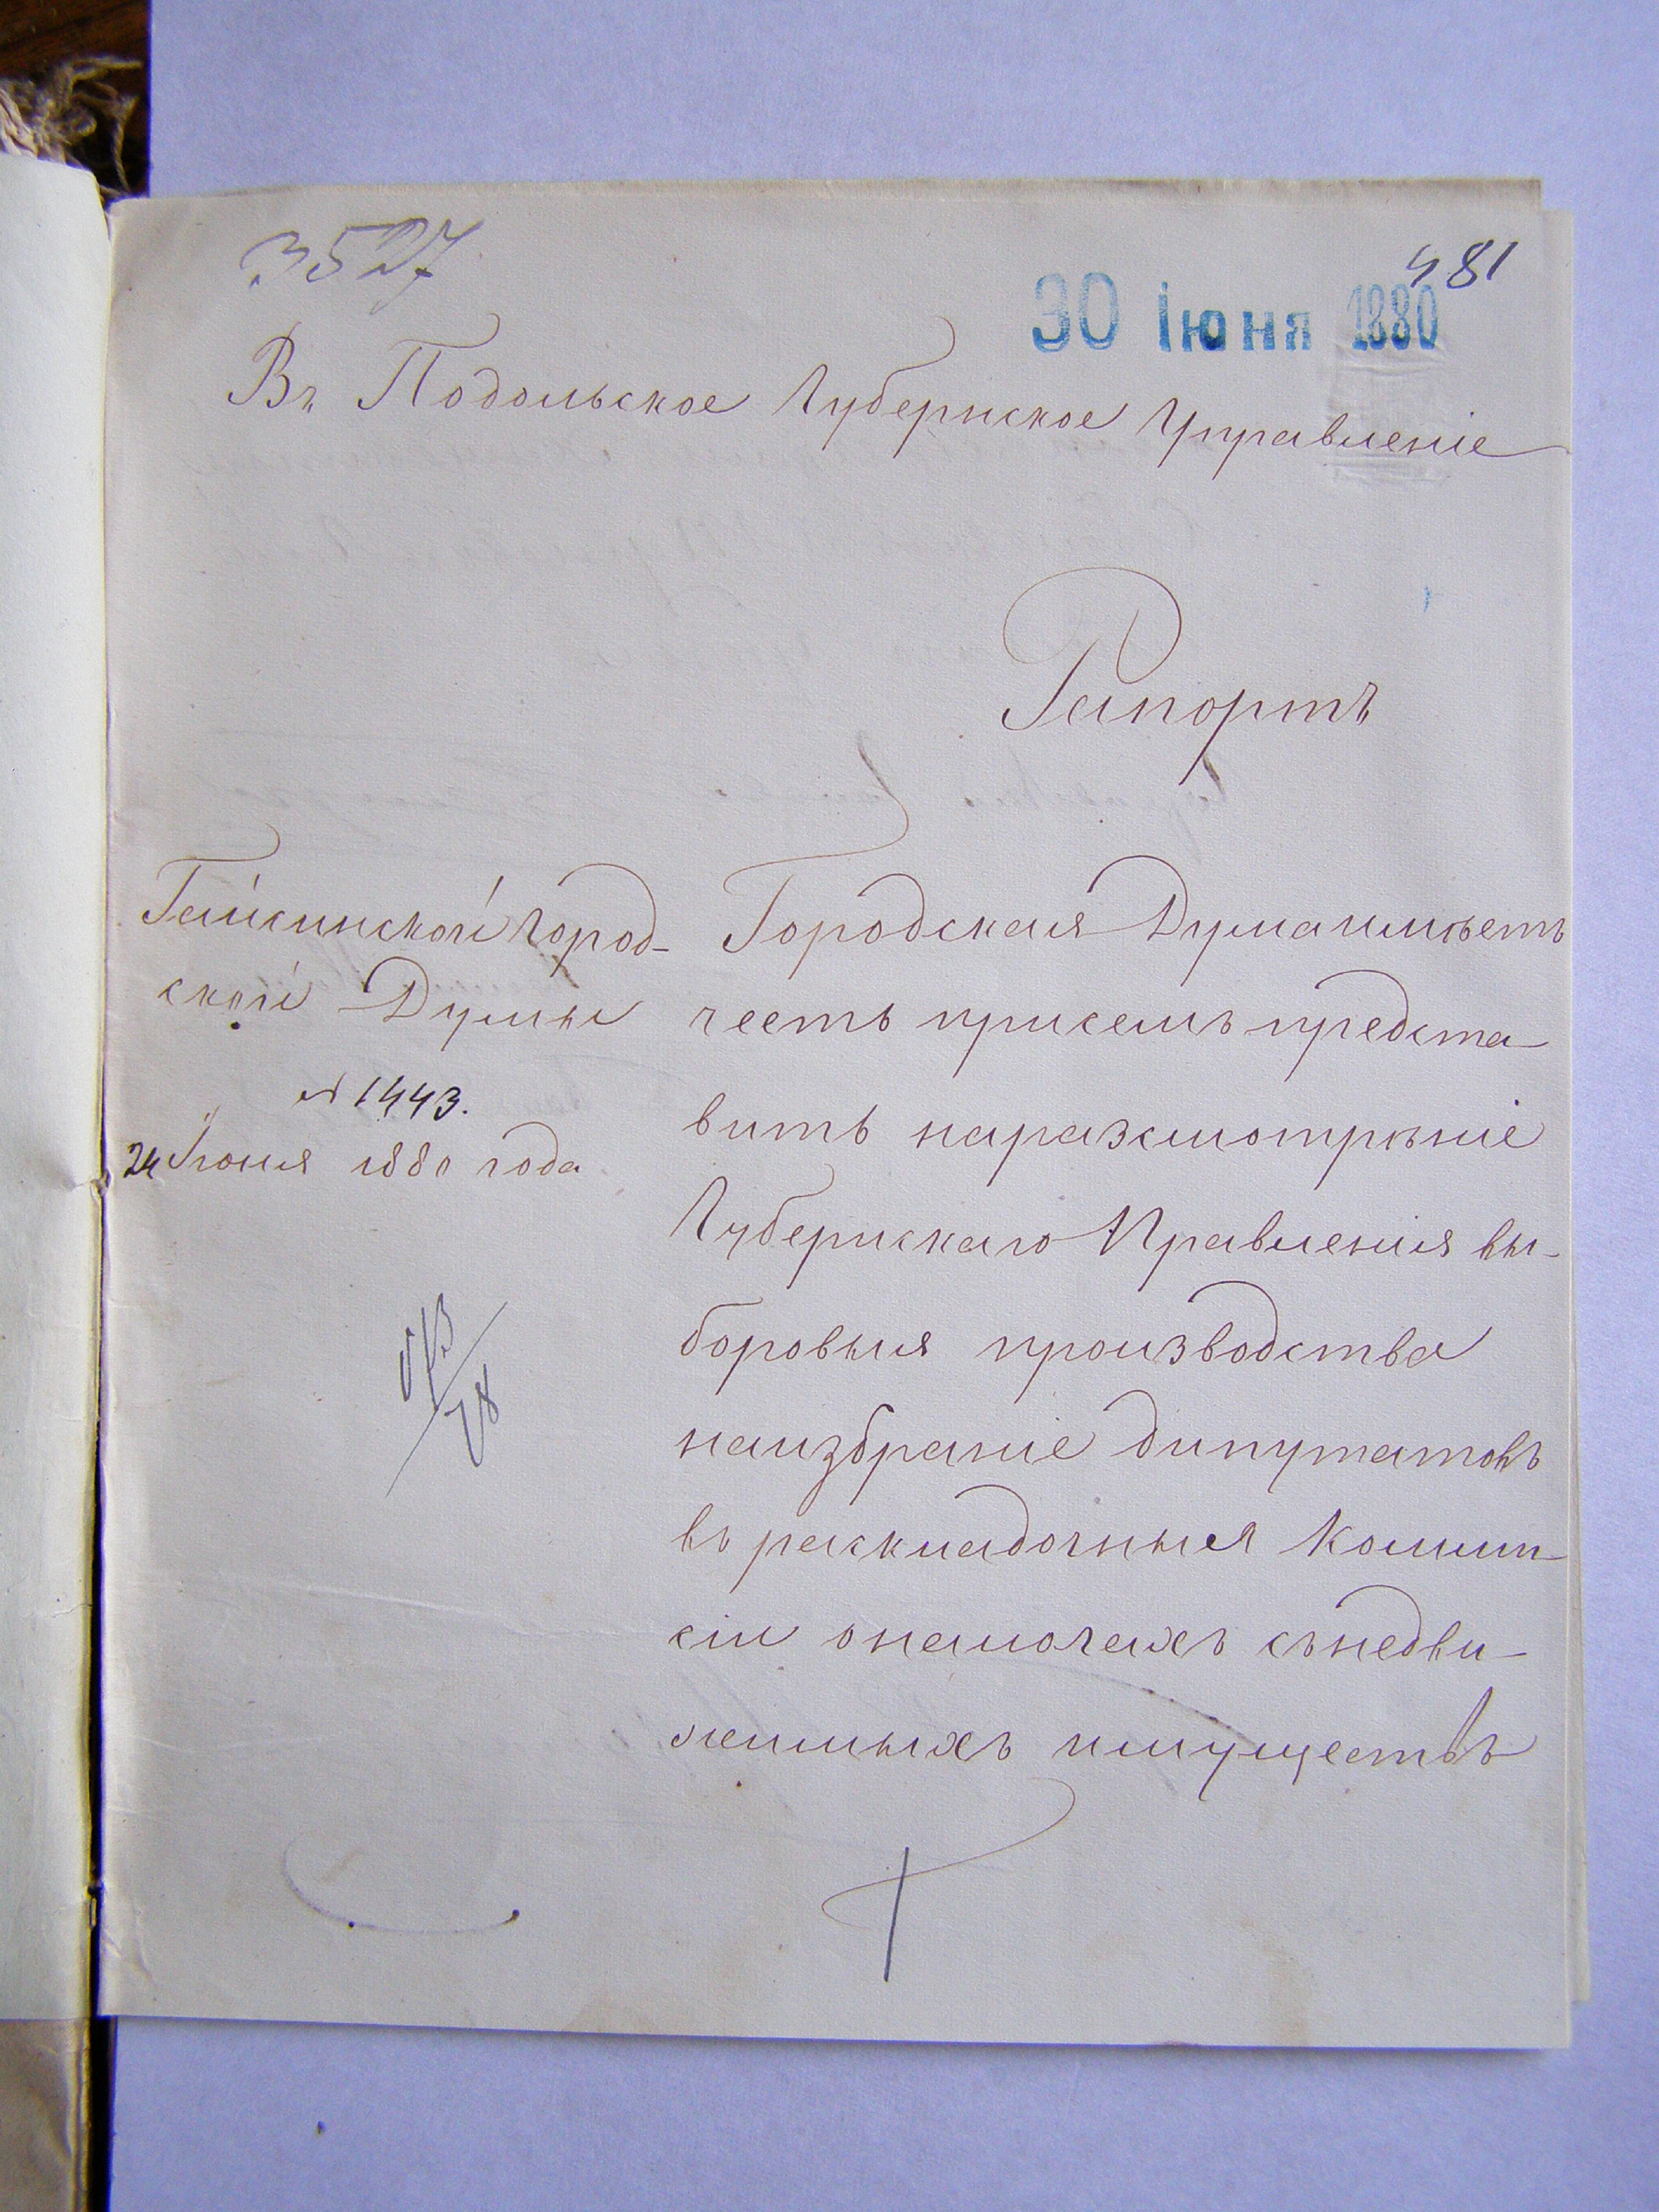 3527
481
30 Іюня 1880
Въ Подольское Губернское Управленіе
Рапортъ
Гайсинской Город-
ской Думы
№ 1443.
24 Іюня 1880 года
Городская Дума имѣетъ
честь присемъ предста-
вить наразсмотрѣніе
Губернскаго Правленія вы-
боровыя производства
наизбраніе дипутатовъ
въ раскладочныя Комми-
сіи о налогахъ съ недви-
жимыхъ имуществъ